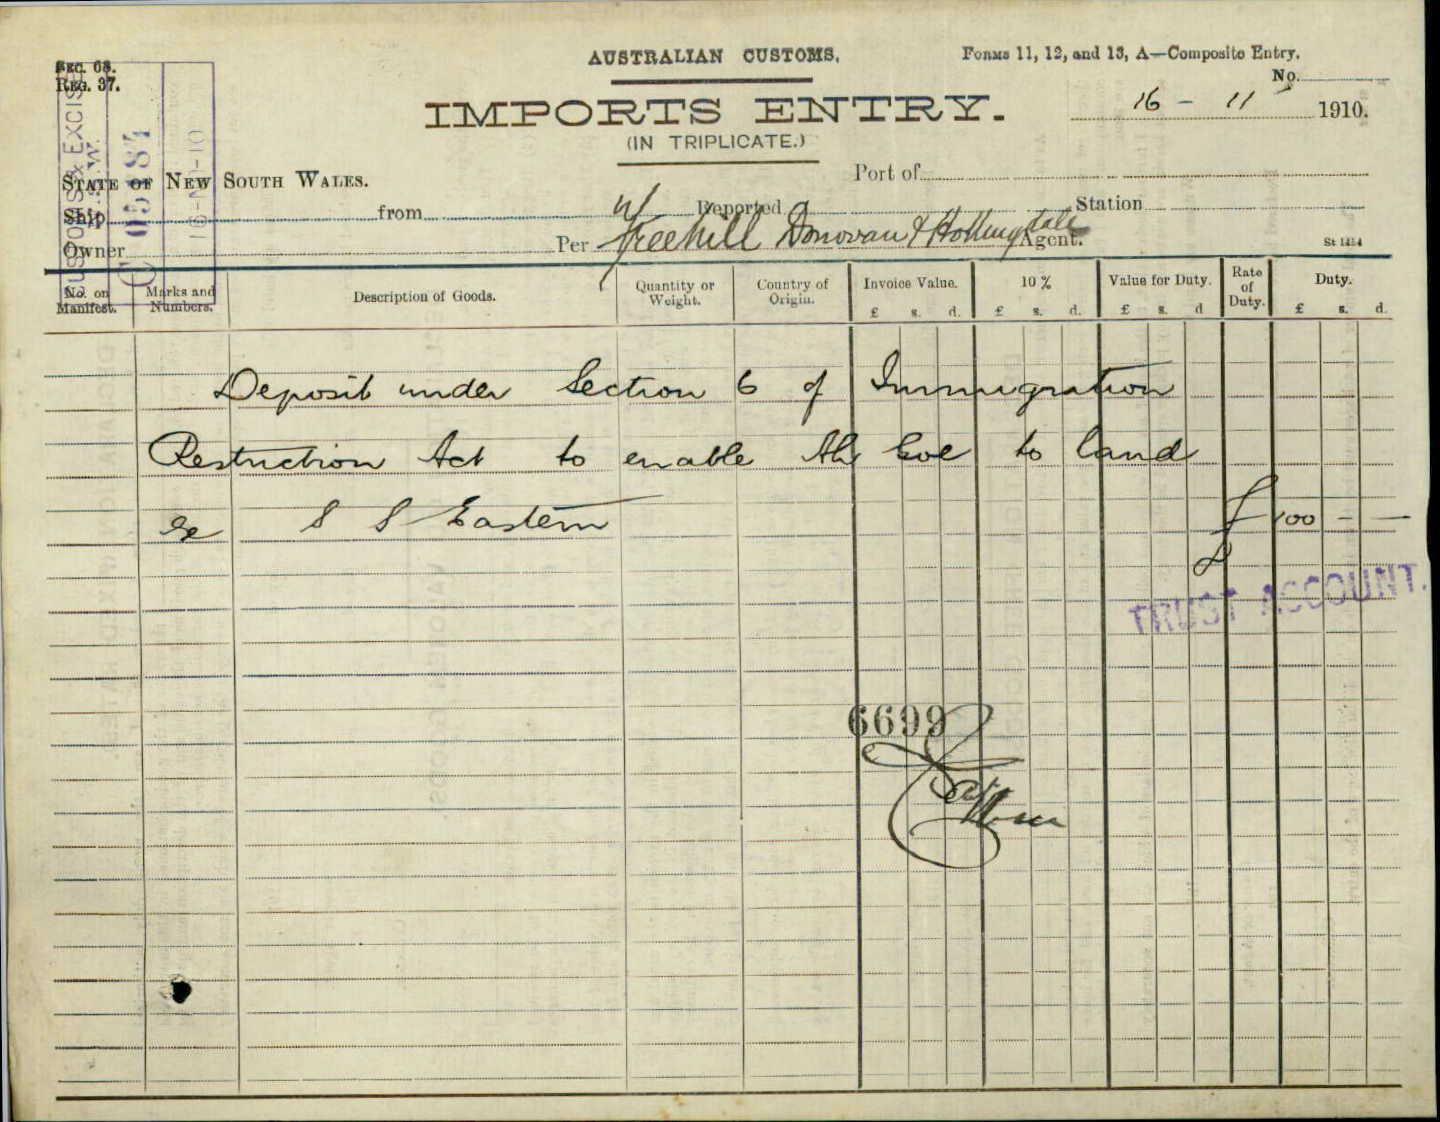 SEC. 68.
REG. 37.
AUSTRALIAN CUSTOMS.
FORMS 11, 12, and 13, A—Composite Entry.
No.
IMPORTS ENTRY.
16 - 11 1910.
(IN TRIPLICATE.)
CUSTOMS & EXCISE
N.S.W.
16-NO-10
STATE OF NEW SOUTH WALES.
Port of
Ship from Reported Station
Owner Per Freehill Donovan & Hollingdale Agent.
St 1454
No. on Manifest.
Marks and Numbers.
Description of Goods.
Quantity or Weight.
Country of Origin.
Invoice Value.
10 %
Value for Duty.
Rate of Duty.
Duty.
£ s. d. £ s. d. £ s. d £ s. d.
Deposit under Section 6 of Immigration
Restriction Act to enable Ah Goe to land
ex S S Eastern £ 100 - -
TRUST ACCOUNT.
6699